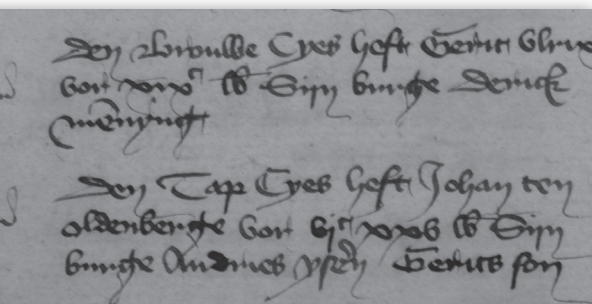 Den Brouwe Cyes heft Gerrit
vor lb Syn burge Derick
menynck
Den Tap Cyes heft Johan ten
oldenberge vor vjc xxv lb Syn
burge Andries Gerrits son